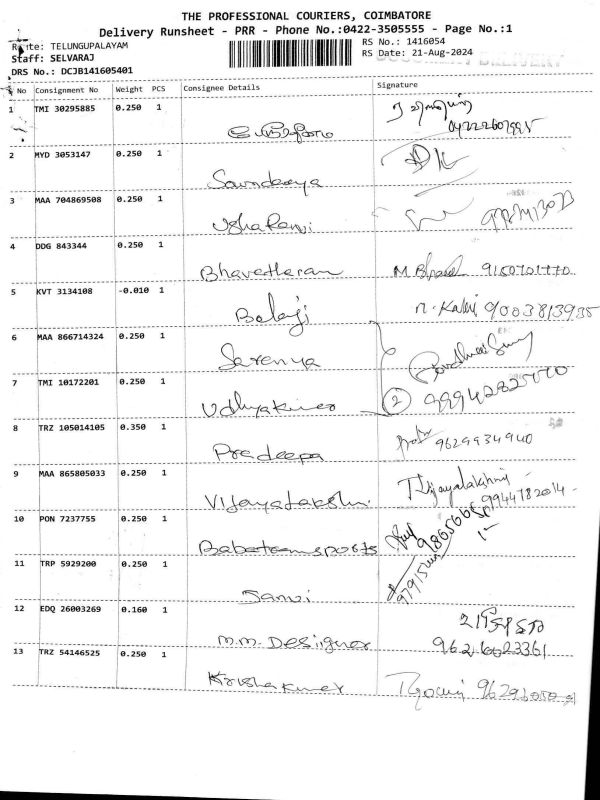 THE PROFESSIONAL COURIERS, COIMBATORE
Delivery Runsheet - PRR - Phone No.:0422-3505555 - Page No.:1
Route: TELUNGUPALAYAM
Staff: SELVARAJ
DRS No.: DCJB141605401
RS No.: 1416054
RS Date: 21-Aug-2024
No Consignment No Weight PCS Consignee Details Signature
1 TMI 30295885 0.250 1
2 MYD 3053147 0.250 1
Soundarya
3 MAA 704869508 0.250 1
Usha Rani
4 DDG 843344 0.250 1
Bhavatharan M. 9150701770
5 KVT 3134108 -0.010 1
Balaji n. Kalai 9003813935
6 MAA 866714324 0.250 1
Saranya
7 TMI 10172201 0.250 1
Udhyakumar 2
8 TRZ 105014105 0.350 1
Pradeepa 9629934940
9 MAA 865805033 0.250 1
Vijayalakshmi T. Vijayalakshmi 9944782014
10 PON 7237755 0.250 1
11 TRP 5929200 0.250 1
Sanvi
12 EDQ 26003269 0.160 1
M.M. Designer
13 TRZ 54146525 0.250 1
Krishakumar